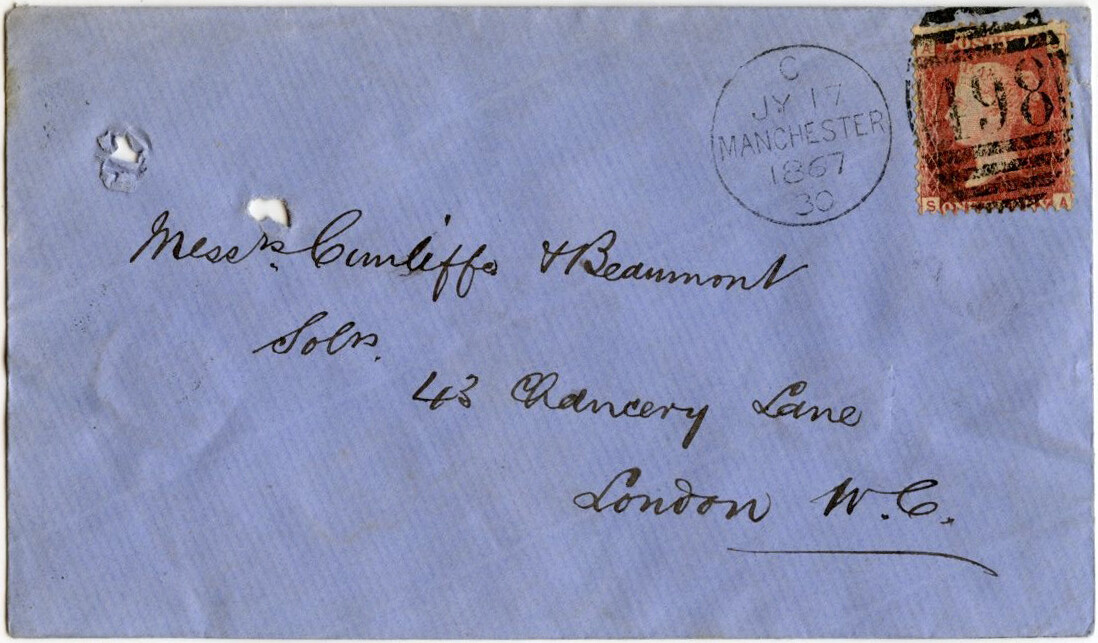 C
JY 17
MANCHESTER
1867
30
498
A
S
A
Mess<sup>rs</sup>. Cunliffe & Beaumont
Sol<sup>rs</sup>.
43 Chancery Lane
London W.C.